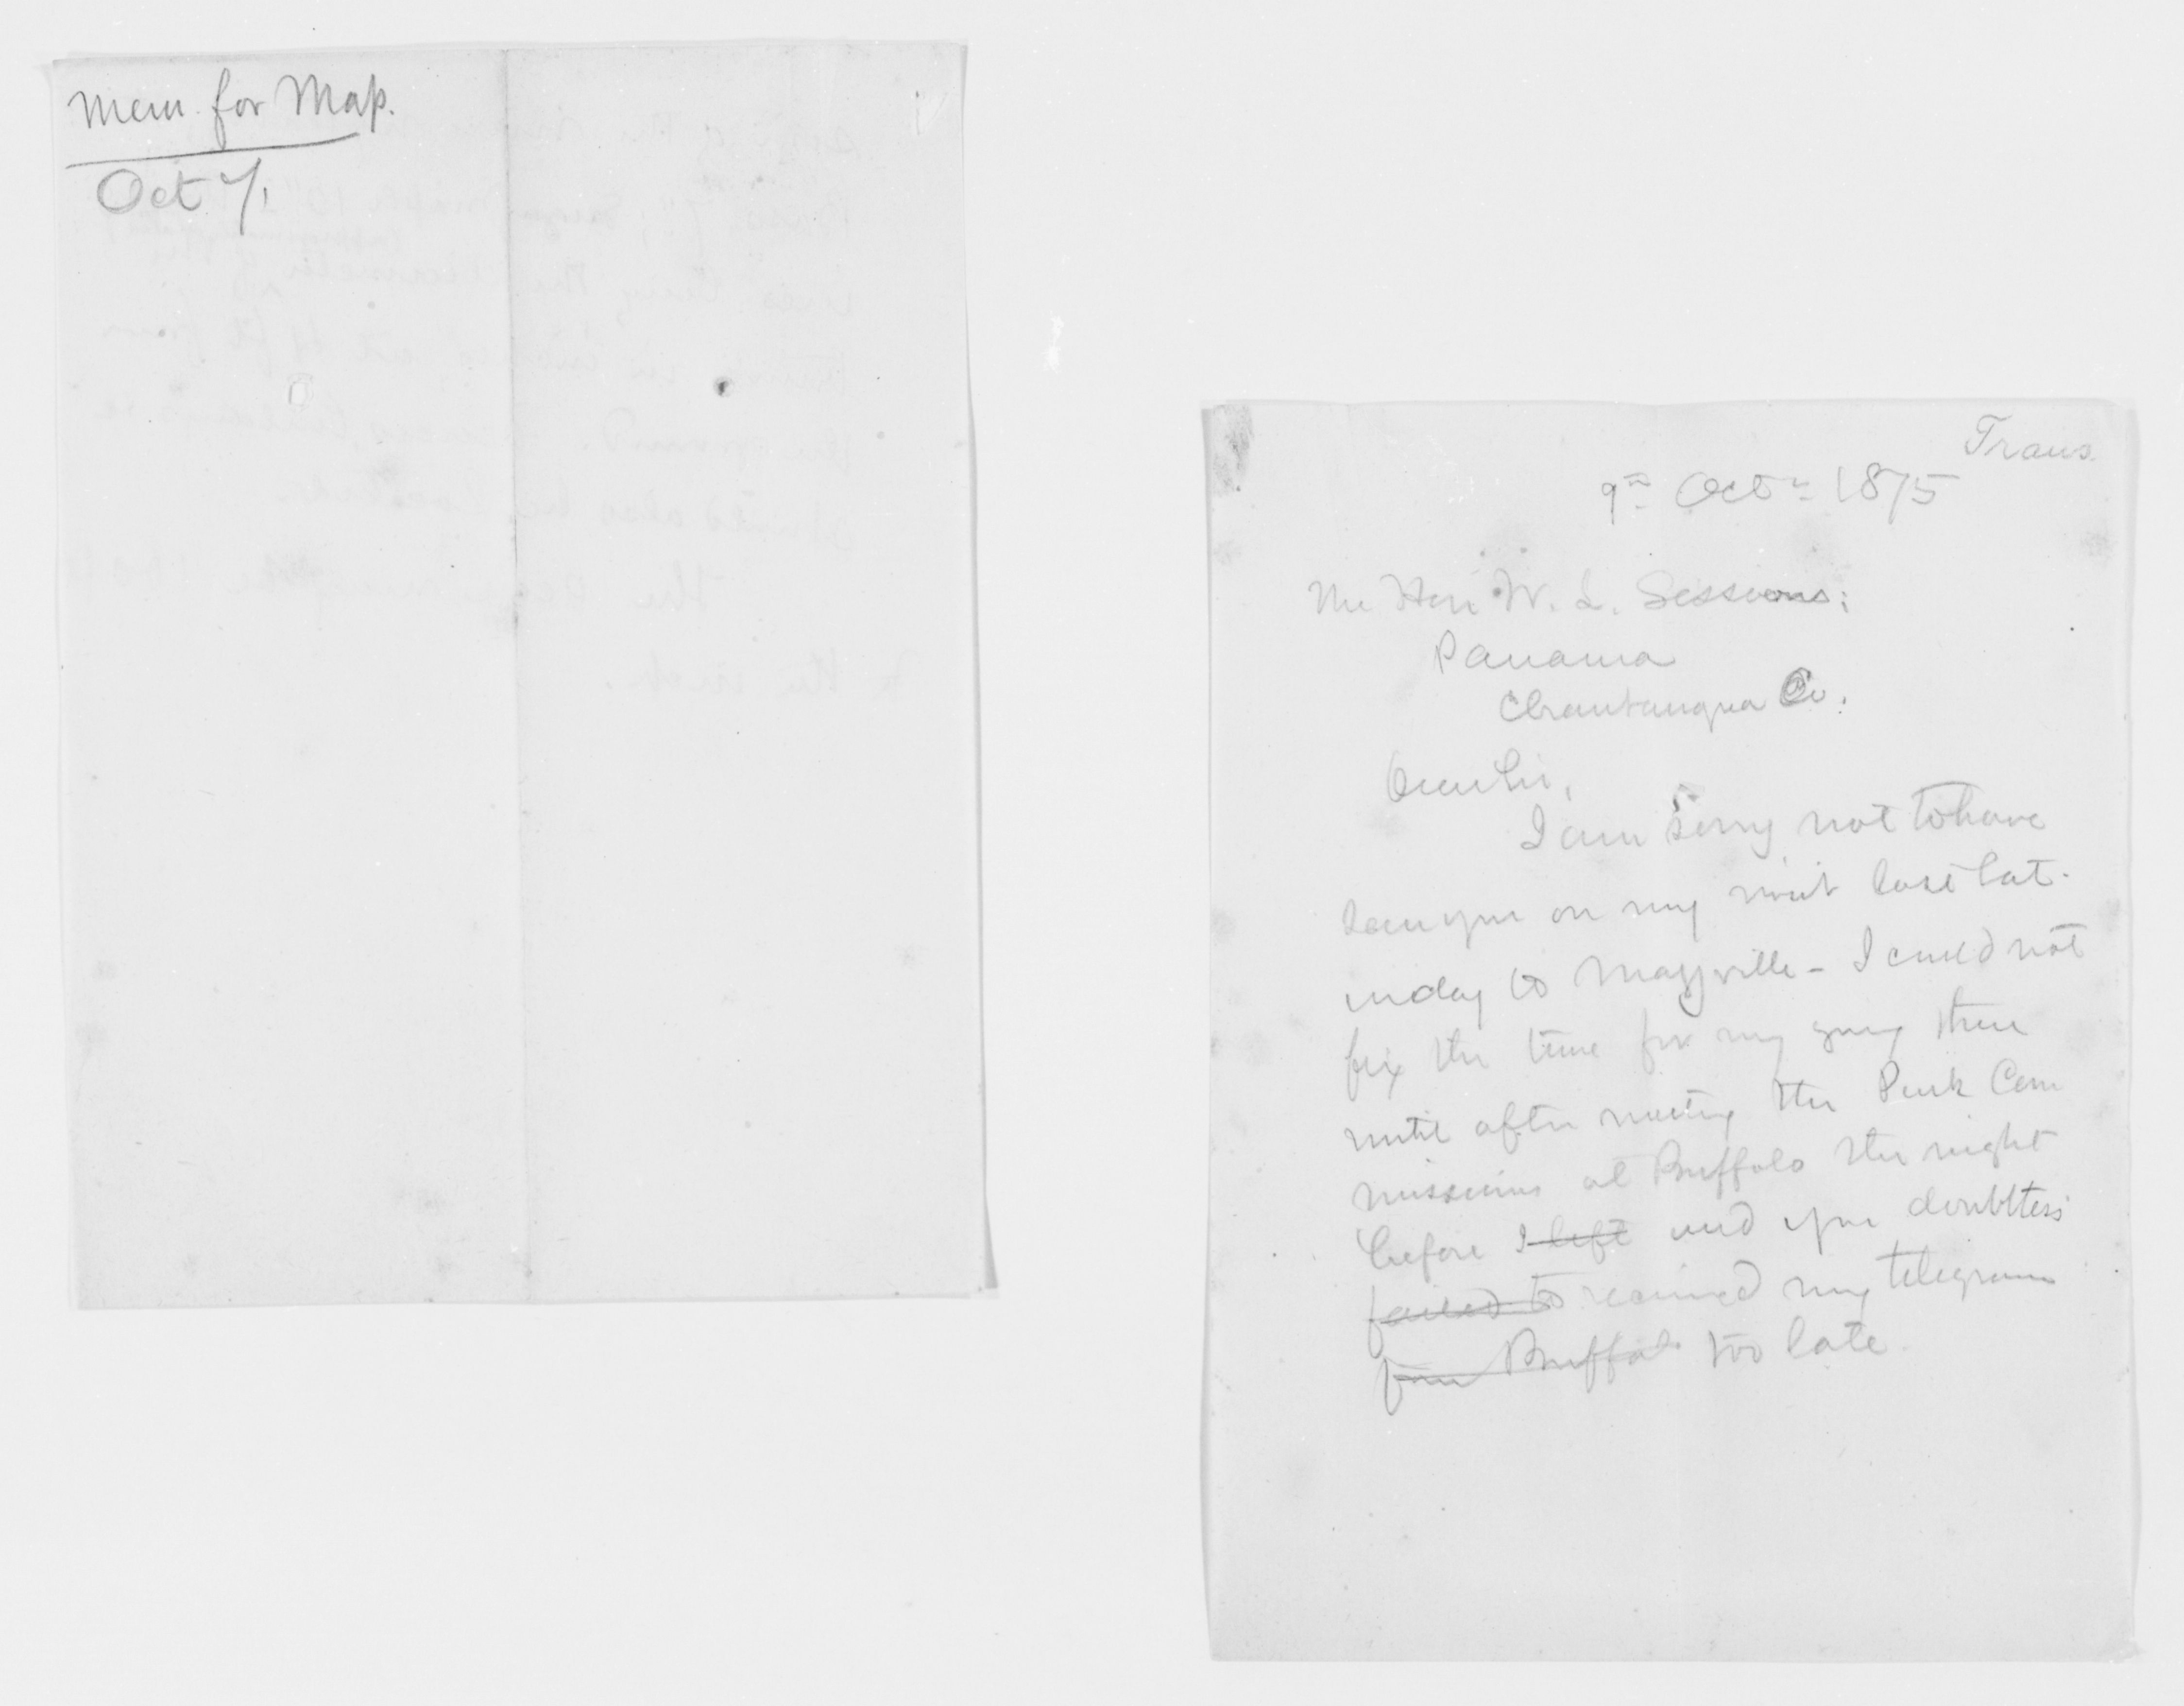 Mem. for Map.
Oct 7.
Trans.
9th Octr 1875
The Hon W. L. Sessions;
Panama
Chautauqua Co.
Dear Sir,
I am sorry not to have
seen you on my visit last Sat-
urday to Mayville - I could not
fix the time for my going there
until after meeting the Park Com
missions at Buffalo the night
before I left and you doubtless
failed to received my telegram
from Buffalo too late.